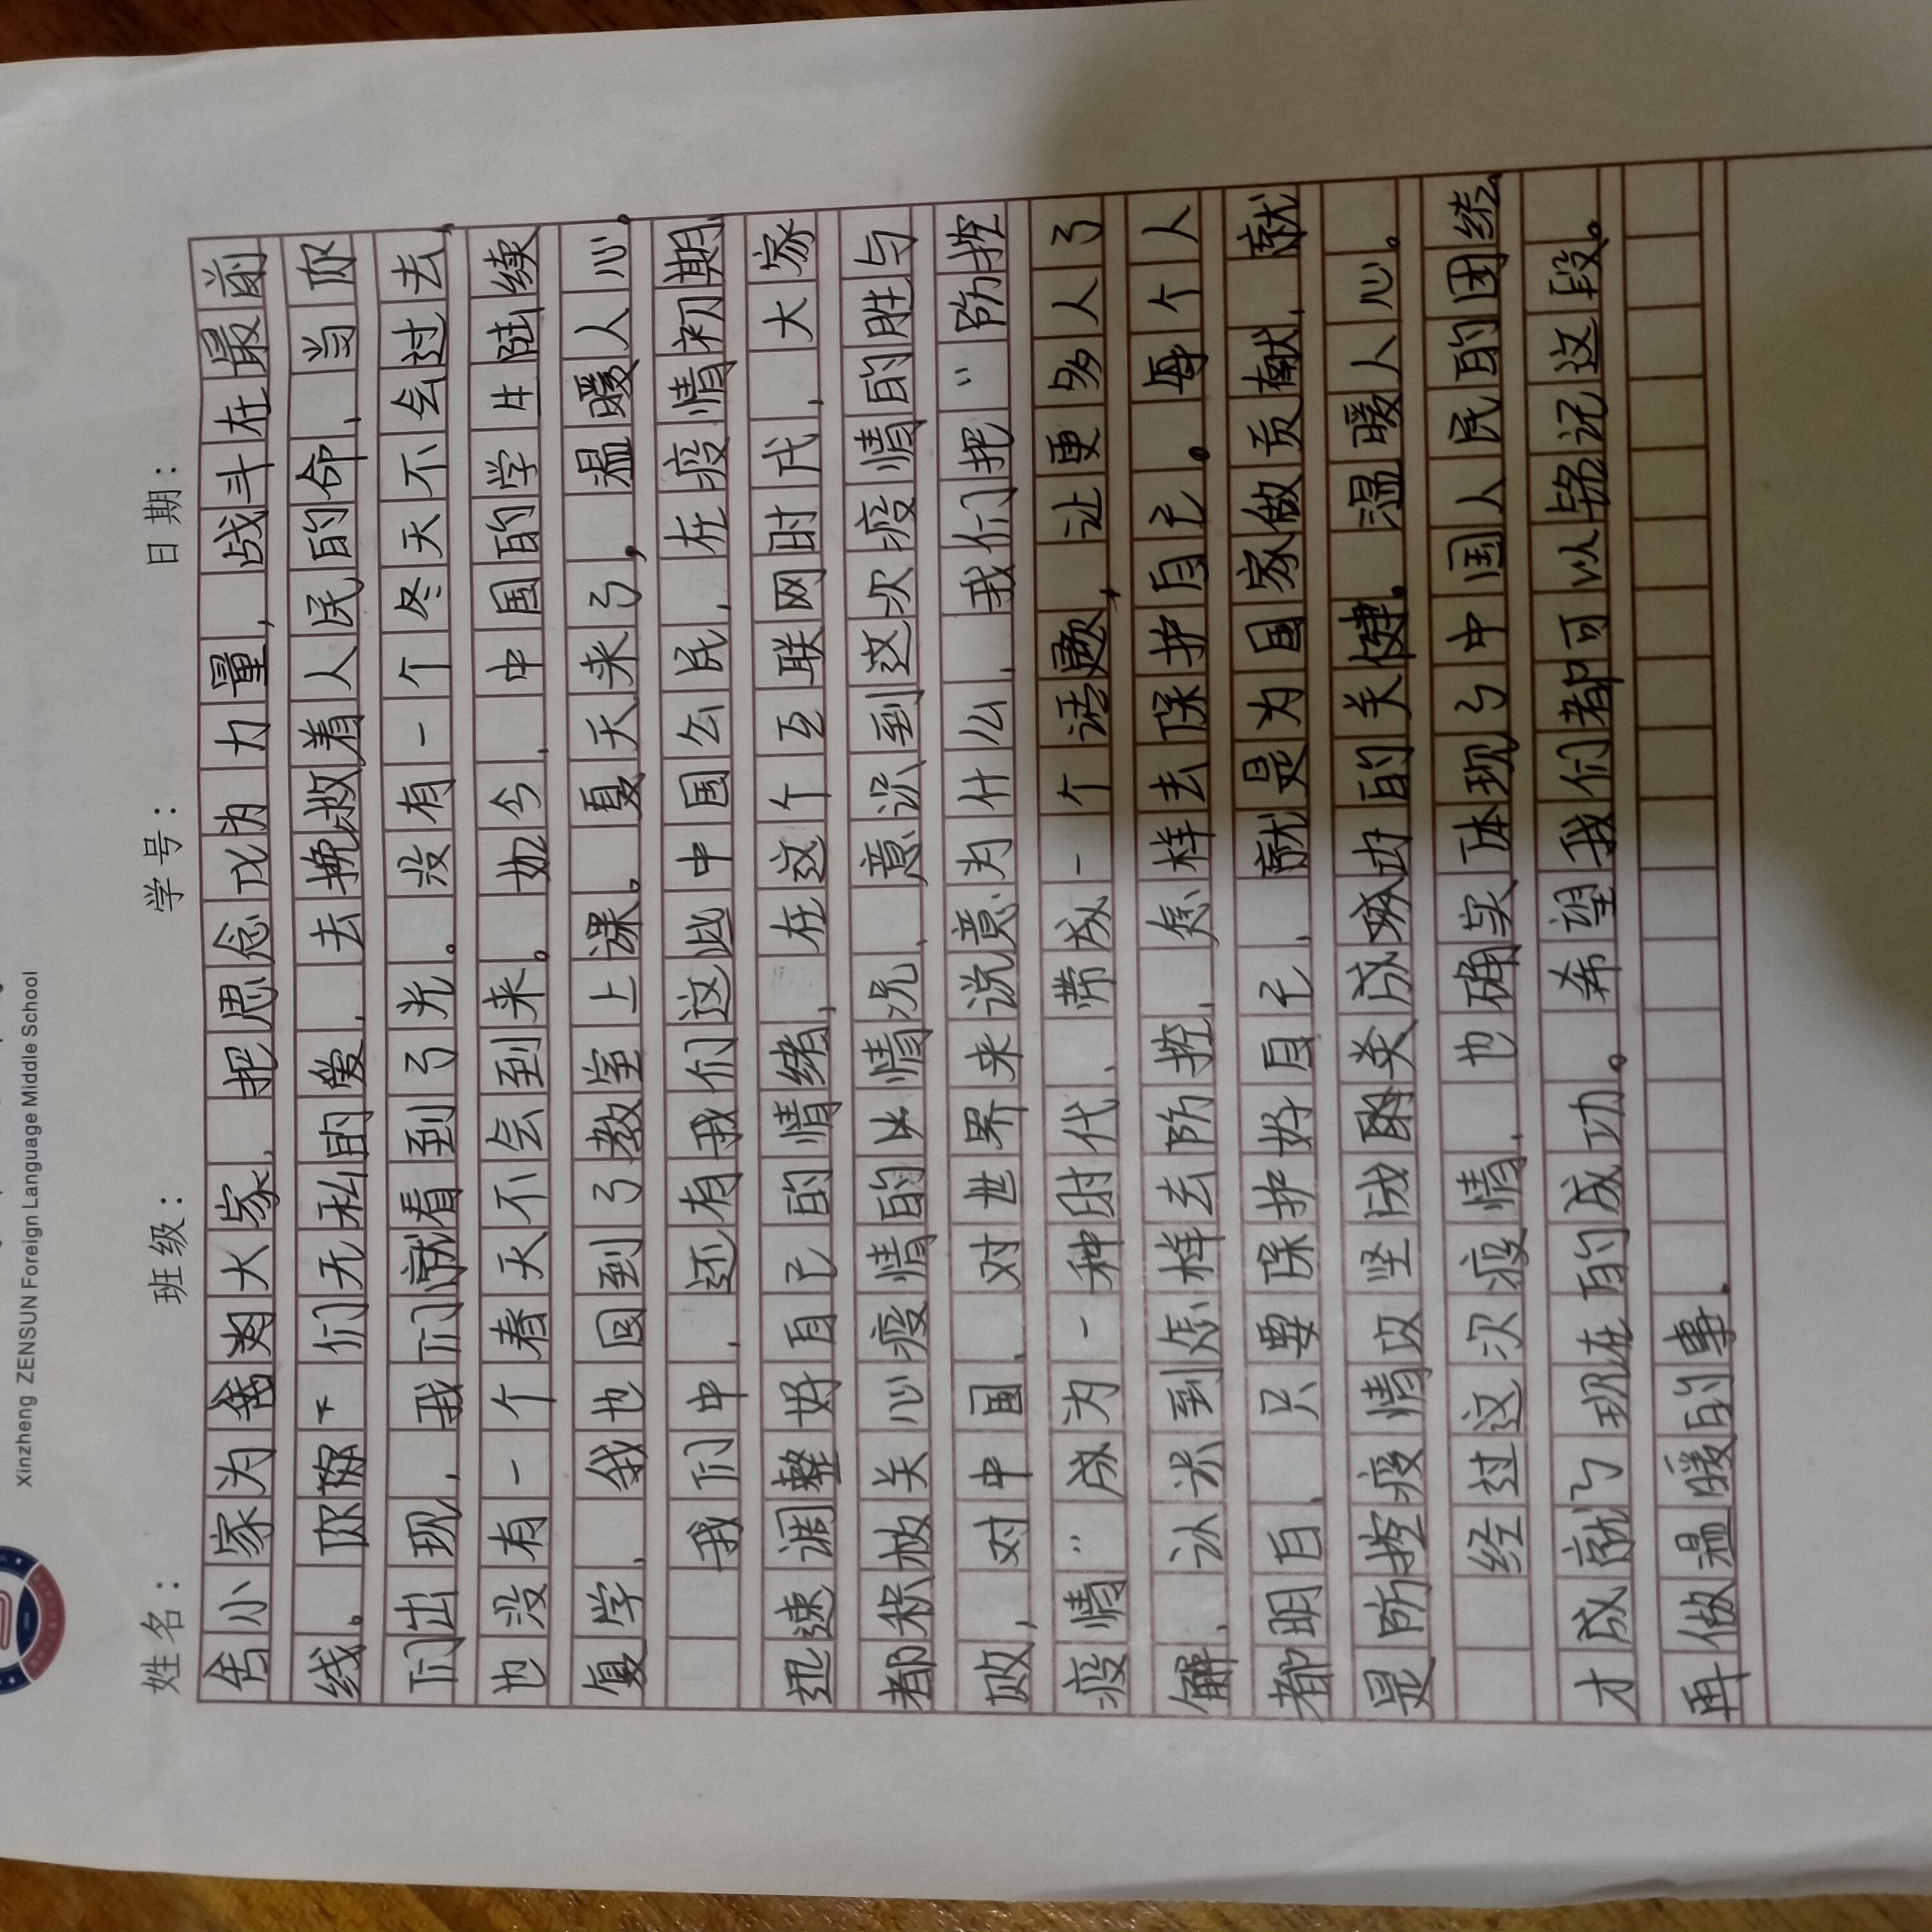 Xinzheng ZENSUN Foreign Language Middle School
姓名： 班级： 学号： 日期：
舍小家为大家，把思念成为力量，战斗在最前
线。你们无私的爱，去挽救着人民的命，当你
们出现，我们就看到了光。没有一个冬天不会过去，
也没有一个春天不会到来。如今，中国的学生陆续
复学，我也回到了教室上课。夏天来了，温暖人心。
我们中，还有我们这些中国公民，在疫情初期，
迅速调整好自己的情绪，在这个互联网时代，大家
都积极关心疫情的情况，意识到这次疫情的胜与
败，对中国，对世界来说意为什么，我们把“防控
疫情”成为一种时代、带成一个话题，让更多人了
解，认识到怎样去防控，怎样去保护自己。每个人
都明白，只要保护好自己，就是为国家做贡献，就
是防控疫情攻坚战成功的关键。温暖人心。
经过这次疫情，也确实体现了中国人民的团结，
才成就了现在的成功。希望我们都可以铭记这段。
再做温暖的事.